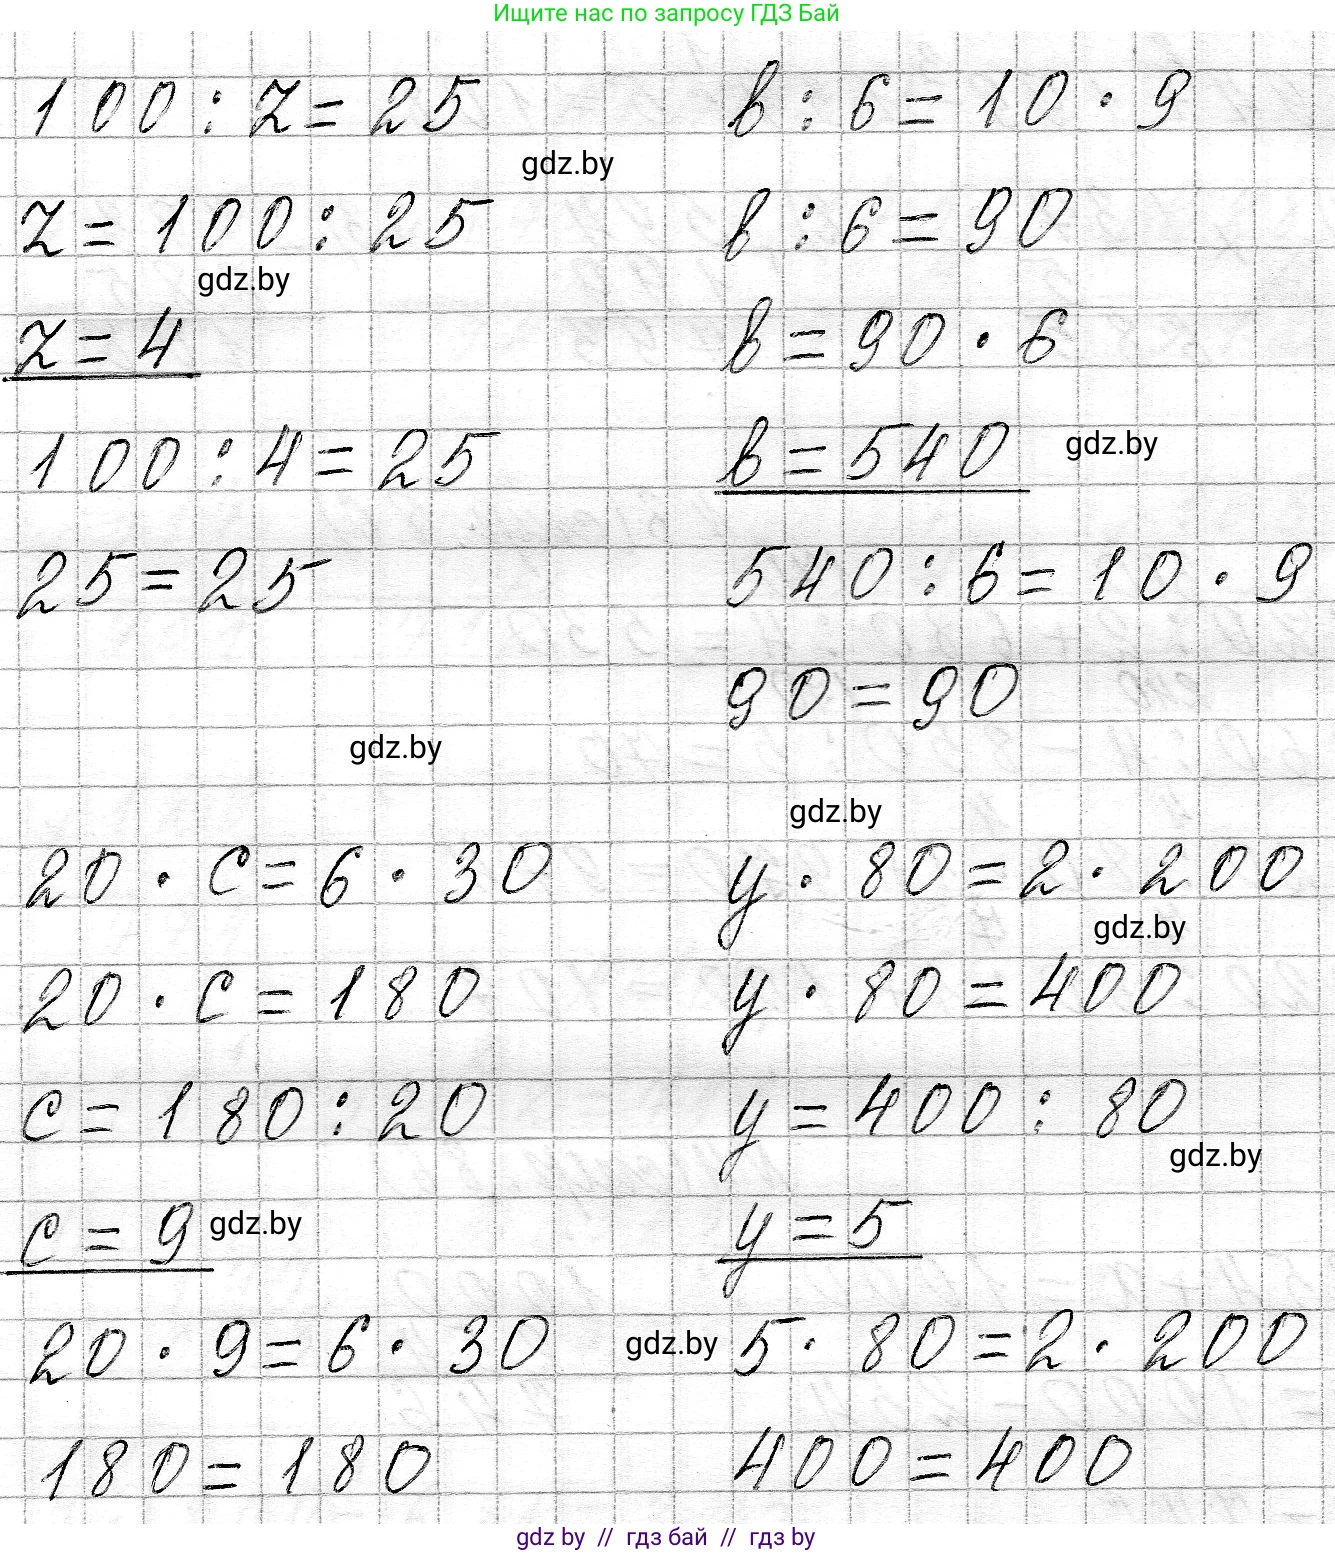 Ищите нас по запросу ГДЗ Бай
100 : z = 25
gdz.by
z = 100 : 25
gdz.by
z = 4
100 : 4 = 25
25 = 25
gdz.by
в : 6 = 10 · 9
в : 6 = 90
в = 90 · 6
в = 540
gdz.by
540 : 6 = 10 · 9
90 = 90
gdz.by
20 · c = 6 · 30
20 · c = 180
c = 180 : 20
c = 9
gdz.by
20 · 9 = 6 · 30
180 = 180
y · 80 = 2 · 200
gdz.by
y · 80 = 400
y = 400 : 80
gdz.by
y = 5
gdz.by
5 · 80 = 2 · 200
400 = 400
gdz by // гдз бай // гдз by